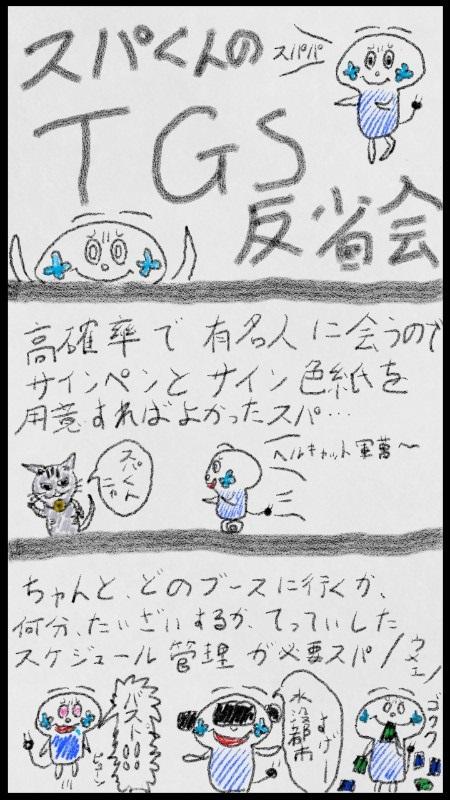 スパくんの
スパパ
TGS
反省会
高確率で有名人に会うので
サインペンとサイン色紙を
用意すればよかったスパ…
スパくん
ニャ
ヘルキャット軍曹〜
ちゃんと、どのブースに行くか、
何分、たいざいするか、てっていした
スケジュール管理が必要スパ
ウメェ
バスト!!!
ビューン
すげー
水没都市
ゴクゴク